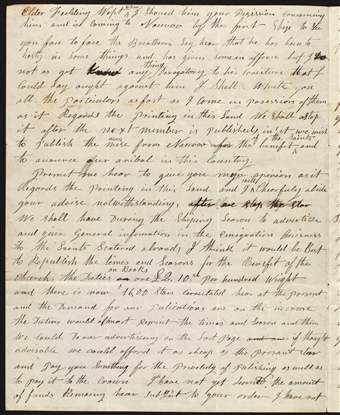 Elder Feilding Night when I Shewed him your Desession Concerning
him and is Coming to Nauvoo by the first Ships to See
you face to face the Breathren Say hear that he has been to
hasty in Some things and has given Some an offence but I do
not as yet Know any thing Derogatory to his Concitions that I
Could Say aught against him I Shall Write you
all the particulars as fast as I Come in possession of them
as it Regards the printing in this Land We Shall Stop
it after the next member is published in it we wish
to publish the news from Nauvoo for the benefit of the Saints and
to anounce our arival in this Country
Promit me hear to give you my opinion as it
Regards the printing in this Land and I will Chearfuly abide
your advise notwithstanding. after we stop the Star
We Shall have During the Shiping Season to advertise
and give General information in the Emigration buisness
to the Saints Scatered abroad, I think it would be best
to Republish the times and Seasons for the Benefit of the
Church. the Duties on Books are £2. 10s per hundred Weight
and there is now 1600 Stars Cerculated hear at the present
and the Demand for our publications are on the increase
the Duties would almost Reprint the times and Season and then
We Could do our advertiseing on the Last Page if thought
adviseable we could afford it as cheap as the presant Star
and pay you Something for the privelidg of Publishing as well as
to pay it to the Crown I have not yet Learnt the amount
of funds Remaning hear Subject to your order I have not